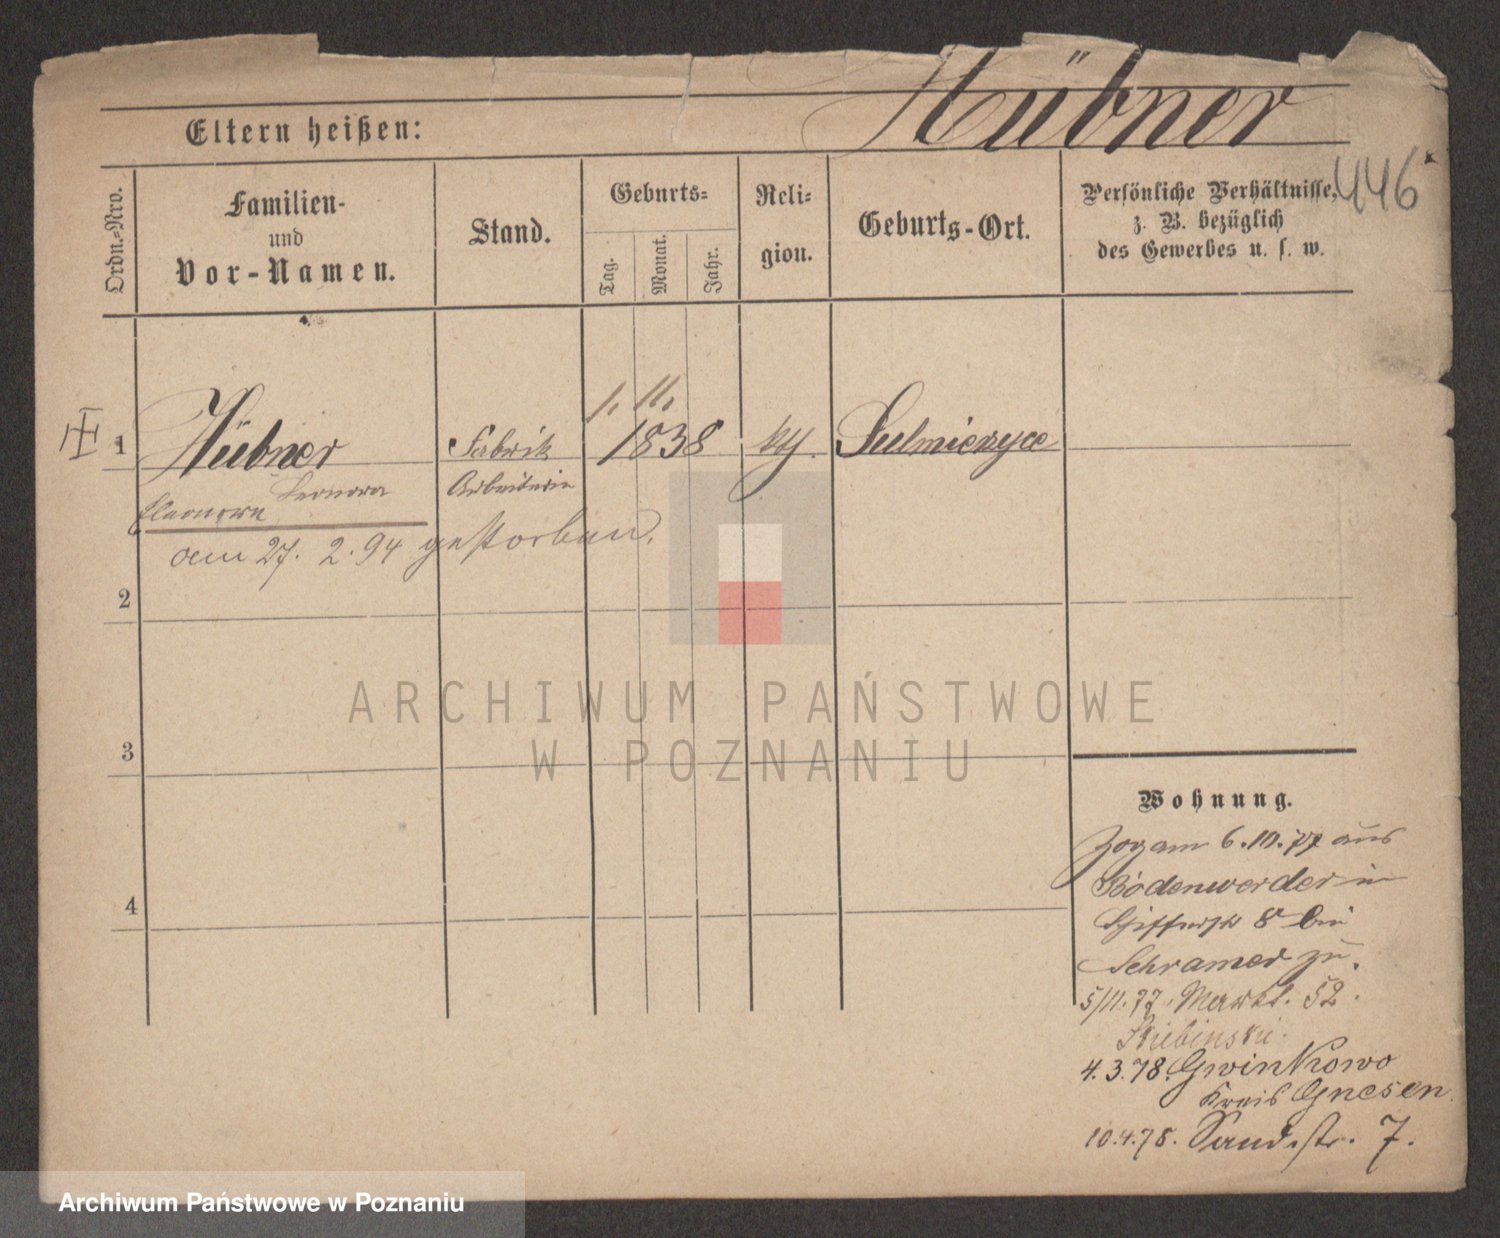 Hübner
Eltern heißen:
446
Ordn.-Nro.
Familien-
und
Vor-Namen.
Stand.
Geburts-
Tag.
Monat.
Jahr.
Reli-
gion.
Geburts-Ort.
Persönliche Verhältnisse,
z. B. bezüglich
des Gewerbes u. s. w.
1. 11.
1 Hübner Fabrik 1838 Sulmierzyce
Leonora Arbeiterin
Eleonora
am 27. 2. 94 gestorben.
2
3
4
ARCHIWUM PAŃSTWOWE
W POZNANIU
Wohnung.
Zog am 6.10.77 aus
Bodenwerder in
Schifferstr 8 bei
Schramer zu.
5/11.77. Markt. 52.
4.3.78. Gwinkowo
Kreis Gnesen
10.4.78. Sandstr. 7.
Archiwum Państwowe w Poznaniu